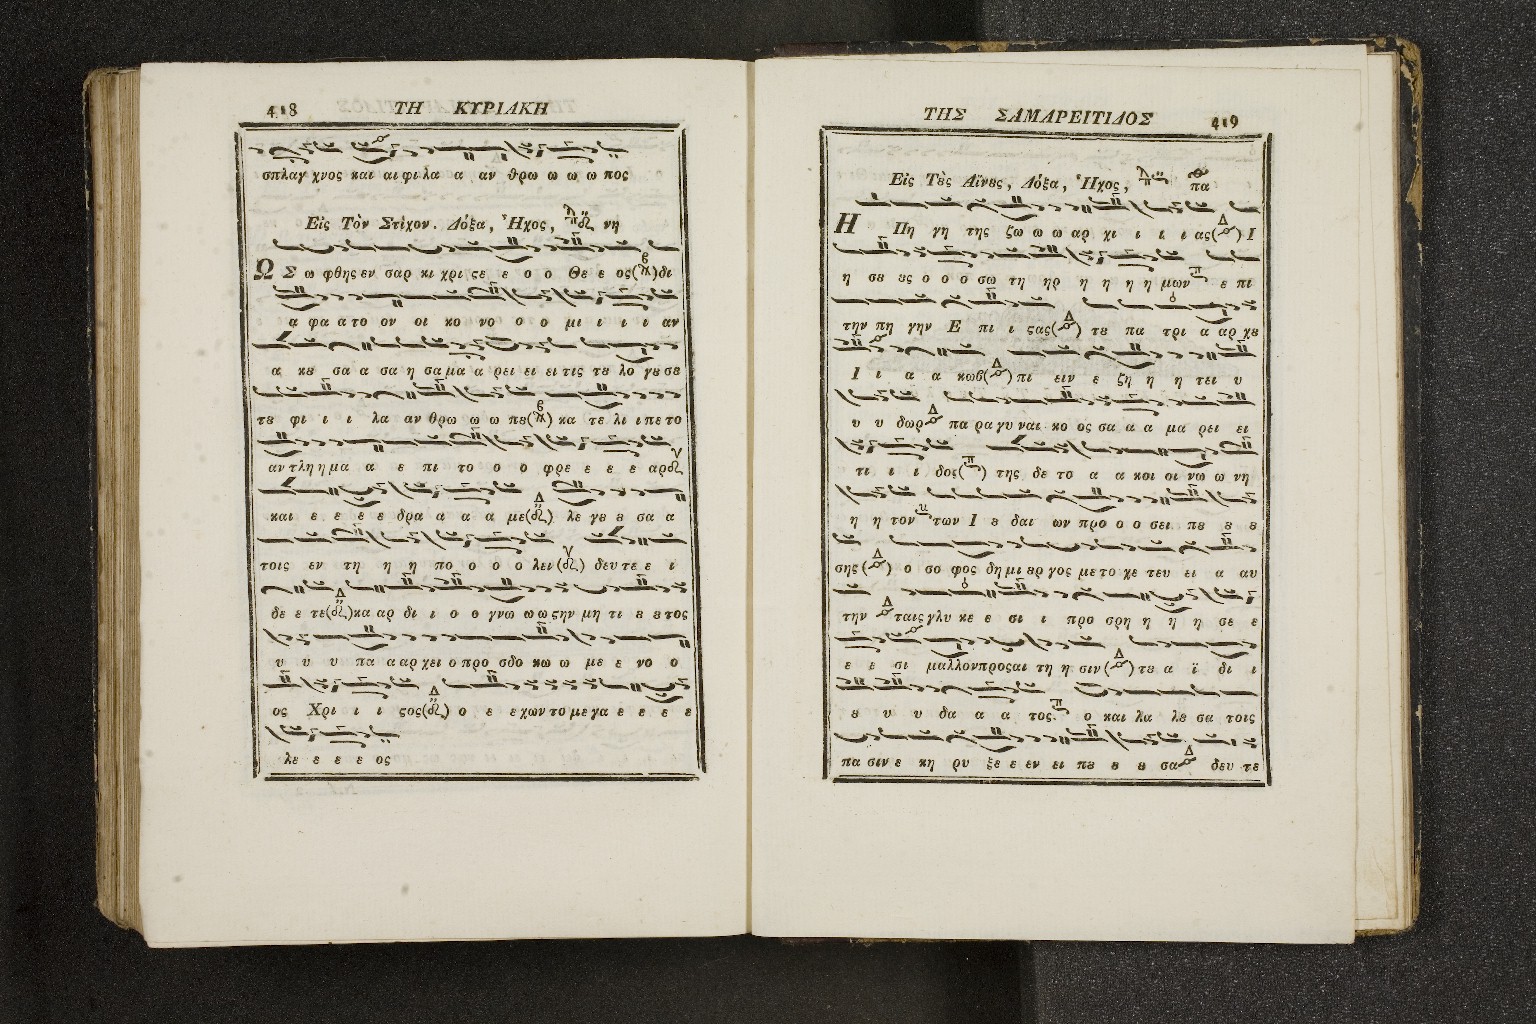 418 ΤΗ ΚΥΡΙΑΚΗ
σπλαγ χνος και αι φι λα α αν θρω ω ω ω πος
Εἰς Τὸν Στίχον. Δόξα, Ἦχος, νη
Ω Σ ω φθης εν σαρ κι χρι ςε ε ο ο Θε ε ος( )δι
α φα α το ον οι κο νο ο ο μι ι ι ι αν
α κȣ σα α σα η σα μα α ρει ει ει τις τȣ λο γȣ σȣ
τȣ φι ι ι λα αν θρω ω ω πȣ( ) κα τε λι ι πε το
αν τλη η μα α ε πι το ο ο φρε ε ε ε αρ
και ε ε ε ε δρα α α α με( ) λε γȣ ȣ σα α
τοις εν τη η η πο ο ο ο λει ( ) δευ τε ε ι
δε ε τε( )κα αρ δι ι ο ο γνω ω ω ςην μη τι ȣ ȣ τος
υ υ υ πα α αρ χει ο προ σδο κω ω με ε νο ο
ος Χρι ι ι ςος( ) ο ε ε χων το με γα ε ε ε ε
λε ε ε ε ος
ΤΗΣ ΣΑΜΑΡΕΙΤΙΔΟΣ 419
Εἰς Τȣ̀ς Αἴνȣς, Δόξα, Ἦχος, πα
Η Πη γη της ζω ω ω αρ χι ι ι ι ας( ) Ι
η σȣ ȣς ο ο ο σω τη ηρ η η η η μων ε πι
την πη γην Ε πι ι ςας( ) τȣ πα τρι α αρ χȣ
Ι ι α α κωβ( ) πι ειν ε ζη η η τει υ
υ υ δωρ πα ρα γυ ναι κο ος σα α α μα ρει ει
τι ι ι δος( ) της δε το α α κοι οι νω ω νη
η η τον των Ι ȣ δαι ων προ ο ο σει πȣ ȣ ȣ
σης ( ) ο σο φος δη μι ȣρ γος με το χε τευ ει α αυ
την ταις γλυ κε ε σι ι προ σρη η η η σε ε
ε ε σι μαλλον προς αι τη η σιν( ) τȣ α ϊ δι ι
ȣ υ υ δα α α τος ο και λα λȣ σα τοις
πα σιν ε κη ρυ ξε ε εν ει πȣ ȣ ȣ σα δευ τε